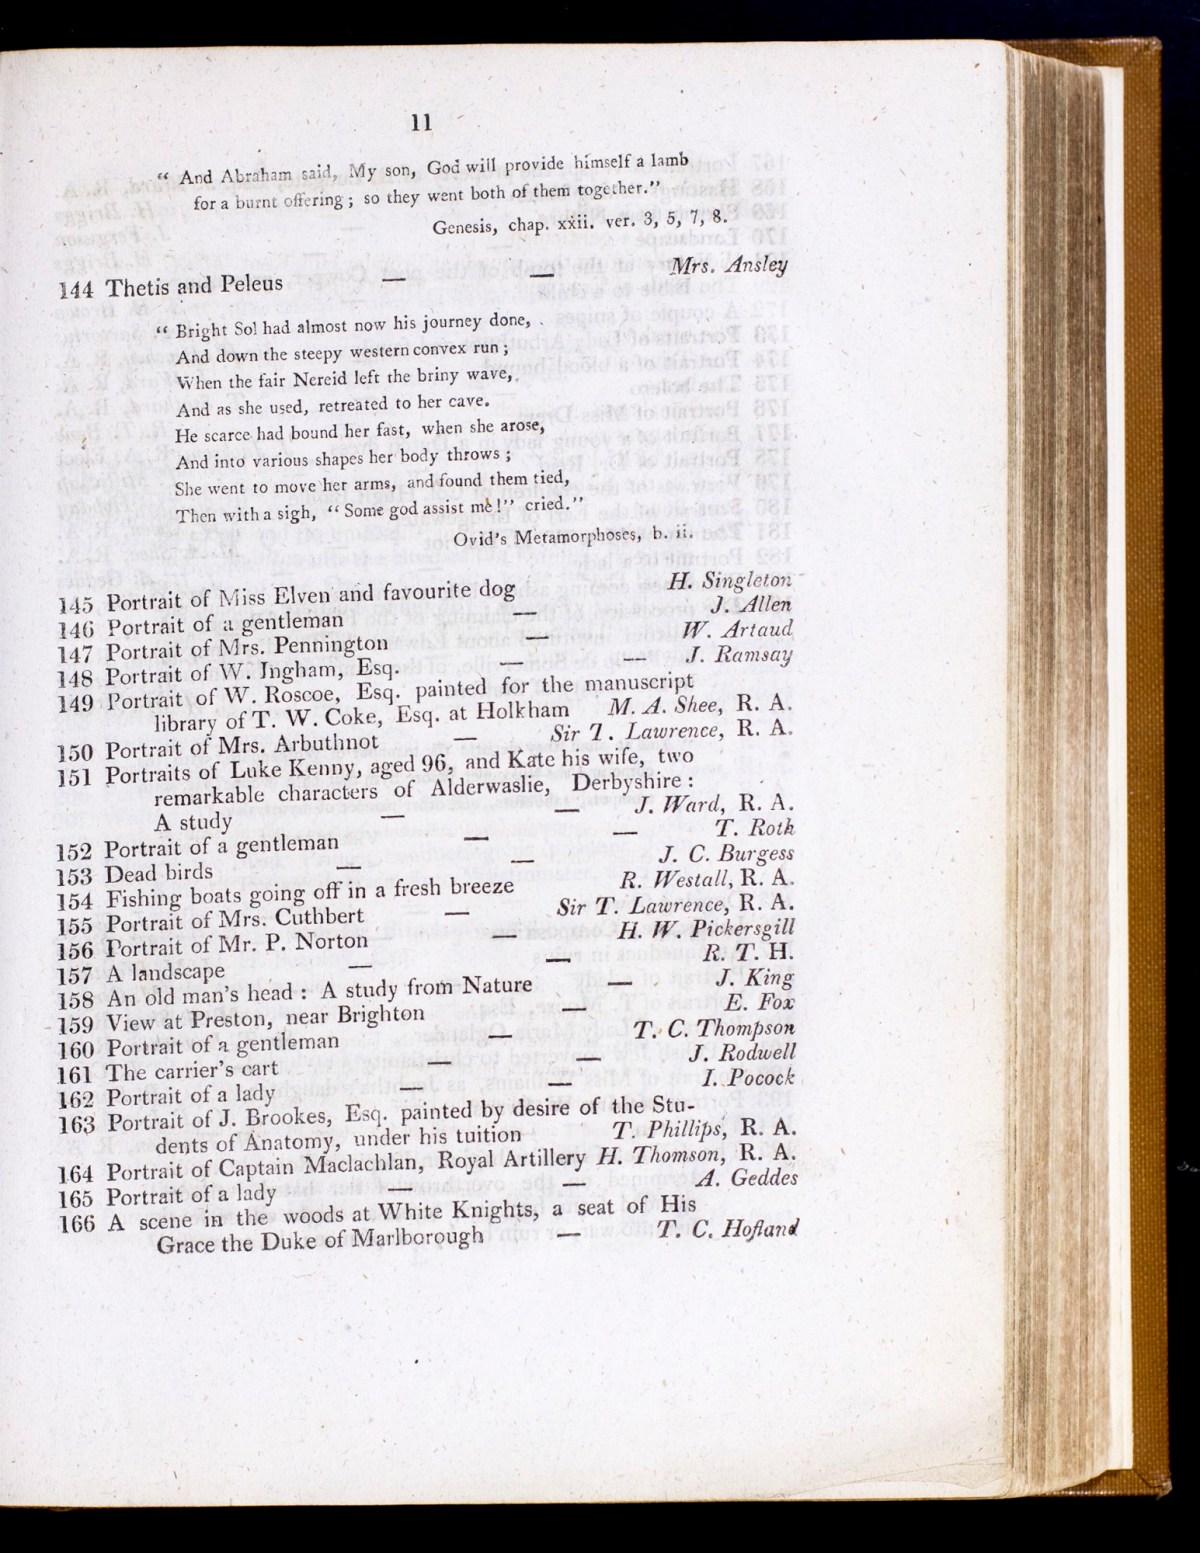 11
“ And Abraham said, My son, God will provide himself a lamb
for a burnt offering ; so they went both of them together.”
Genesis, chap. xxii. ver. 3, 5, 7, 8.
144 Thetis and Peleus — — Mrs. Ansley
“ Bright Sol had almost now his journey done,
And down the steepy western convex run ;
When the fair Nereid left the briny wave,
And as she used, retreated to her cave.
He scarce had bound her fast, when she arose,
And into various shapes her body throws ;
She went to move her arms, and found them tied,
Then with a sigh, “ Some god assist me !” cried.”
Ovid’s Metamorphoses, b. ii.
145 Portrait of Miss Elven and favourite dog H. Singleton
146 Portrait of a gentleman — J. Allen
147 Portrait of Mrs. Pennington — W. Artaud
148 Portrait of W. Ingham, Esq. — — J. Ramsay
149 Portrait of W. Roscoe, Esq. painted for the manuscript
library of T. W. Coke, Esq. at Holkham M. A. Shee, R. A.
150 Portrait of Mrs. Arbuthnot — Sir T. Lawrence, R. A.
151 Portraits of Luke Kenny, aged 96, and Kate his wife, two
remarkable characters of Alderwaslie, Derbyshire :
A study — — J. Ward, R. A.
152 Portrait of a gentleman — — T. Roth
153 Dead birds — — J. C. Burgess
154 Fishing boats going off in a fresh breeze R. Westall, R. A.
155 Portrait of Mrs. Cuthbert — Sir T. Lawrence, R. A.
156 Portrait of Mr. P. Norton — H. W. Pickersgill
157 A landscape — — R. T. H.
158 An old man’s head : A study from Nature — J. King
159 View at Preston, near Brighton — E. Fox
160 Portrait of a gentleman — T. C. Thompson
161 The carrier’s cart — — J. Rodwell
162 Portrait of a lady — — I. Pocock
163 Portrait of J. Brookes, Esq. painted by desire of the Stu-
dents of Anatomy, under his tuition T. Phillips, R. A.
164 Portrait of Captain Maclachlan, Royal Artillery H. Thomson, R. A.
165 Portrait of a lady — — A. Geddes
166 A scene in the woods at White Knights, a seat of His
Grace the Duke of Marlborough — T. C. Hofland